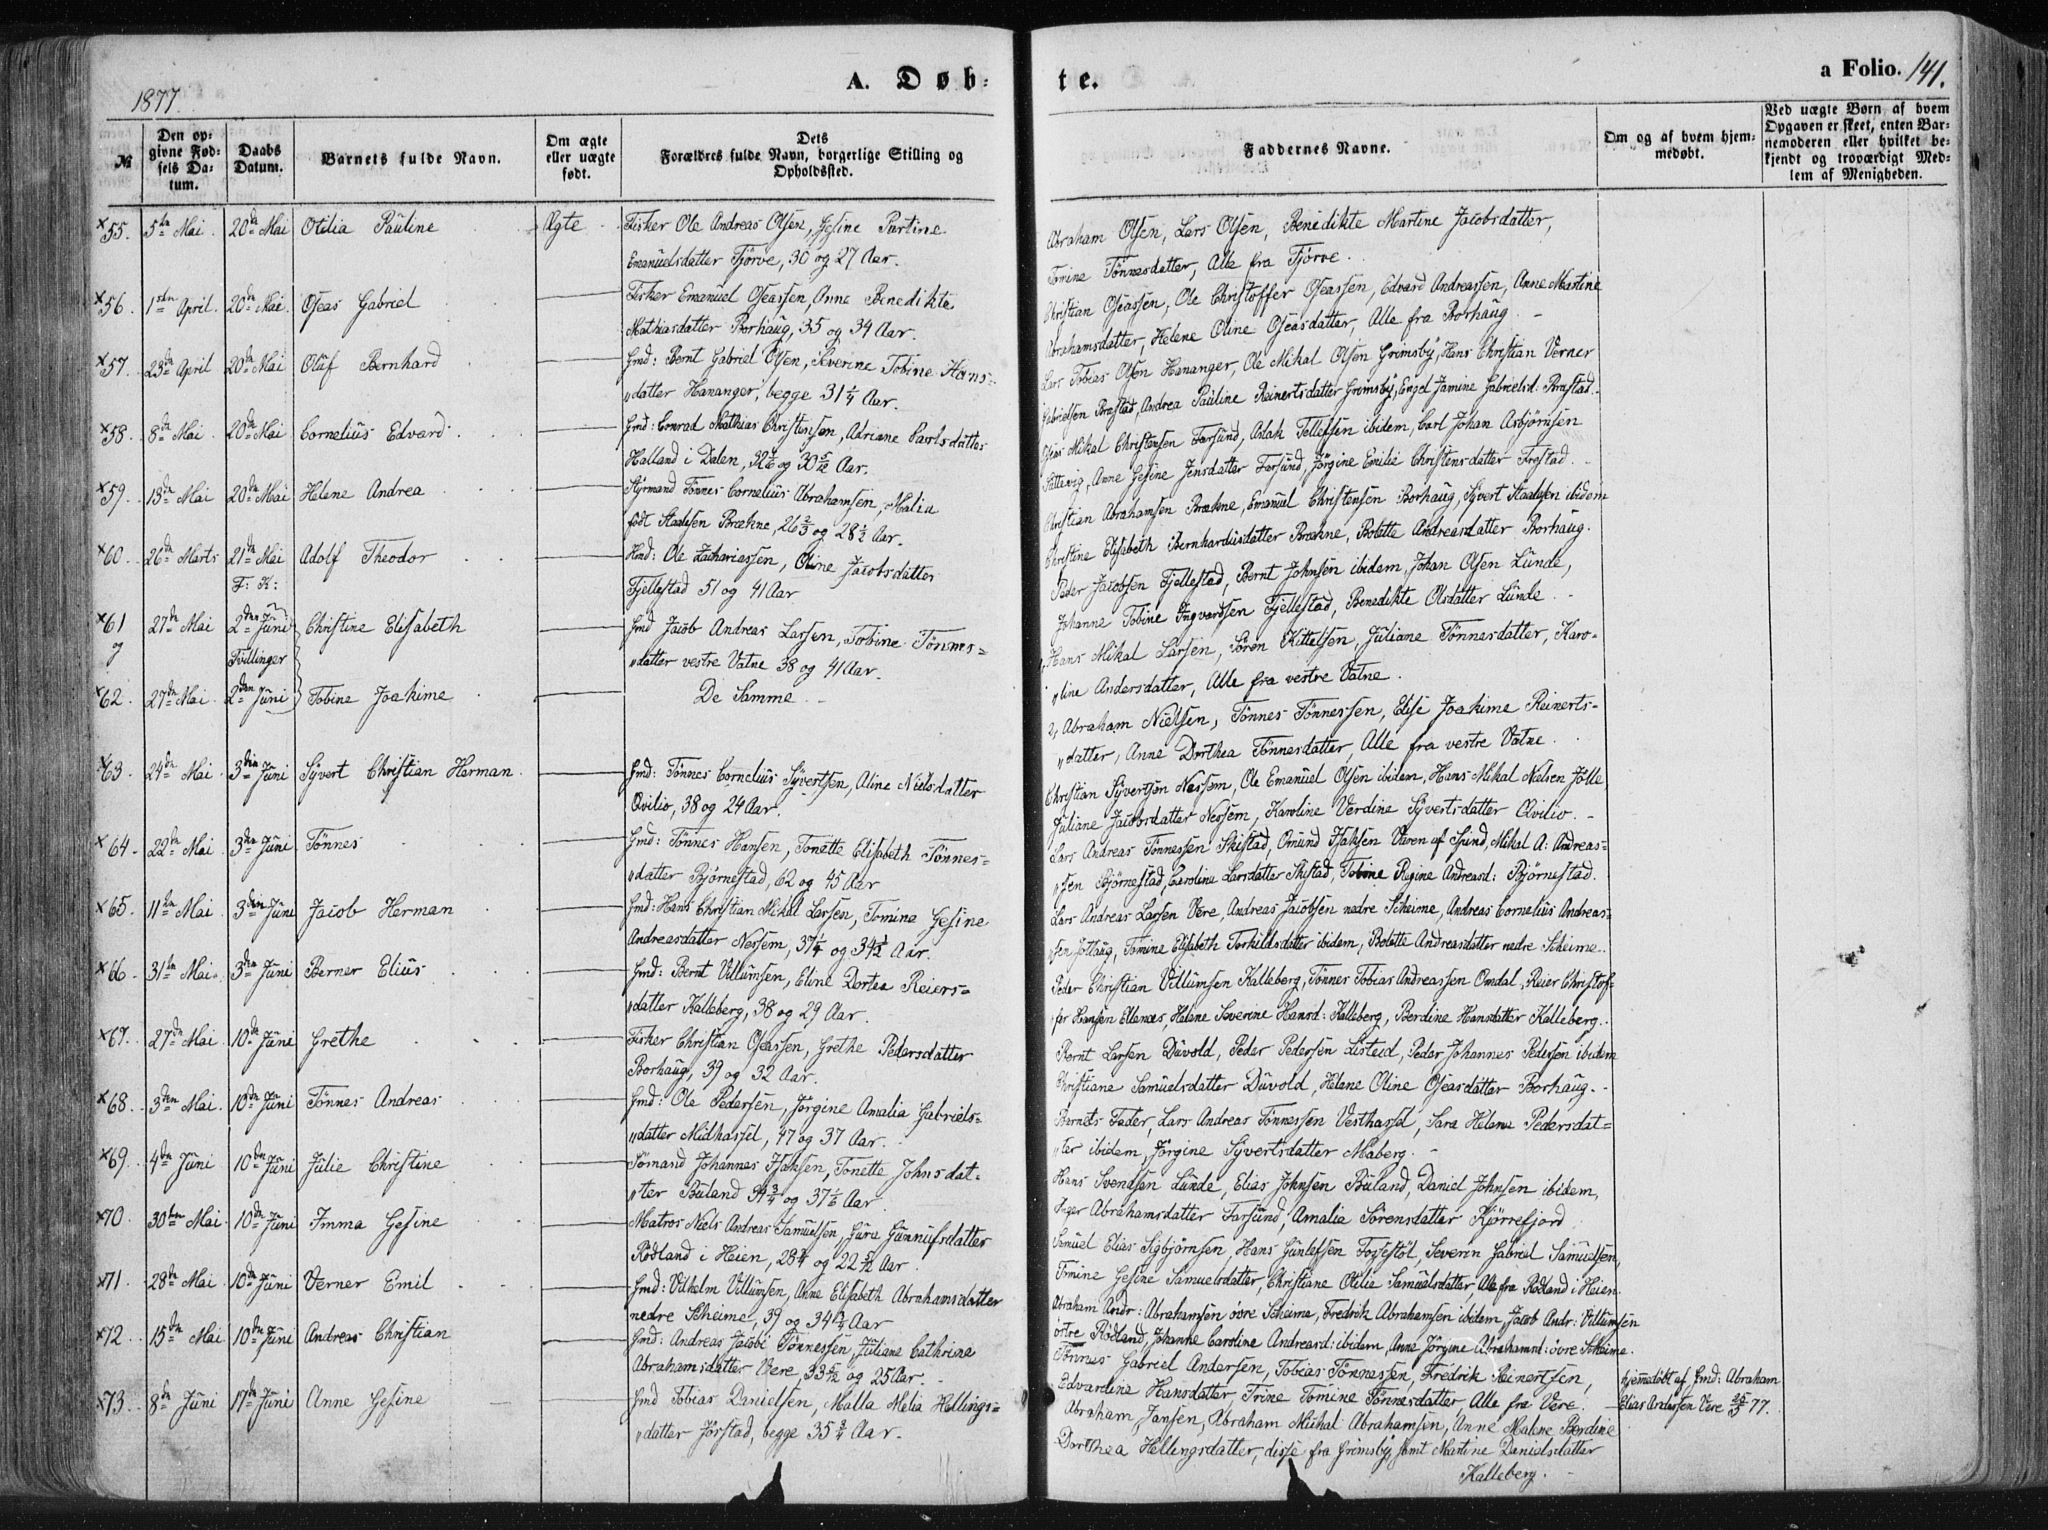 1877.
A. Døb-
te.
a Folio. 141.
№
Den opgivne Fødsels Datum.
Daabs Datum.
Barnets fulde Navn.
Om ægte eller uægte født.
Dets Forældres fulde Navn, borgerlige Stilling og Opholdssted.
Faddernes Navne.
Om og af hvem hjemmedøbt.
Ved uægte Børn af hvem Opgaven er skeet, enten Barnemoderen eller hvilket bekjendt og troværdigt Medlem af Menigheden.
×55. 5te Mai 20de Mai Otilia Pauline Ægte Fisker Ole Andreas Olsen, Gesine Partine
Emanuelsdatter Tjörve, 30 og 27 Aar.
Abraham Olsen, Lars Olsen, Benedikte Martine Jacobsdatter,
Tomine Tönnesdatter, Alle fra Tjörve.
×56. 1ste April 20de Mai Oseas Gabriel Fisker Emanuel Oseassen, Anne Benedikte
Mathiasdatter Borhaug, 35 og 34 Aar.
Christian Oseassen, Ole Christoffer Oseassen, Edvard Andreassen, Anne Martine
Abrahamsdatter, Helene Oline Oseasdatter, Alle fra Borhaug.
×57. 23de April 20de Mai Olaf Bernhard Gmd: Bernt Gabriel Olsen, Severine Tobine Hans-
"datter Hananger, begge 31 1/4 Aar.
Lars Tobias Olsen Hananger, Ole Mikal Olsen Grimsby, Hans Christian Verner
Gabrielsen Brastad, Andrea Pauline Reinertsdatter Grimsby, Engel Jamine Gabrielsd. Brastad.
×58. 8de Mai 20de Mai Cornelius Edvard Gmd: Conrad Mathias Christensen, Adriane Carlsdatter
Halland i Dalen, 32 1/6 og 30 5/12 Aar.
Elias Mikal Christensen Farsund, Aslak Tellefsen ibidem, Carl Johan Asbjørnsen
Anne Gesine Jensdatter Farsund, Jörgine Emilie Christensdatter Frestad.
×59. 13de Mai 20de Mai Helene Andrea Styrmand Tönnes Cornelius Abrahamsen, Malia
født Staalesen Brækne, 26 2/3 og 28 1/2 Aar.
Christian Abrahamsen Brækne, Emanuel Christensen Borhaug, Syvert Staalesen ibidem
Christine Elisabeth Bernhardusdatter Brækne, Bolette Andreasdatter Borhaug.
×60. 26de Marts 21de Mai F: K: Adolf Theodor Hmd: Ole Zachariassen, Oline Jacobsdatter
Fjellestad 51 og 41 Aar
Peder Jacobsen Fjellestad, Bernt Johnsen ibidem, Johan Olsen Lunde,
Johanne Tobine Ingvardsen Fjellestad, Benedikte Olsdatter Lunde.
×61 27de Mai 2den Juni Christine Elisabeth Gmd Jacob Andreas Larsen, Tobine Tönnes-
og Tvillinger "datter vestre Vatne 38 og 41 Aar.
1, Hans Mikal Larsen, Sören Kittelsen, Juliane Tönnesdatter, Karo-
"line Andersdatter, Alle fra vestre Vatne.
×62. 27de Mai 2den Juni Tobine Joakime De Samme
2, Abraham Nielsen, Tönnes Tönnessen, Elise Joakime Reinerts-
"datter, Anne Dorthea Tönnesdatter, Alle fra vestre Vatne.
×63. 24de Mai 3die Juni Syvert Christian Herman Gmd: Tönnes Cornelius Syvertsen, Aline Nielsdatter
Qvilio, 38 og 24 Aar.
Christian Syvertsen Nessem, Ole Emanuel Olsen ibidem, Hans Mikal Nielsen Jölle
Juliane Jacobsdatter Nessem, Karoline Verdine Syvertsdatter Qvilio.
×64. 22de Mai 3die Juni Tönnes Gmd: Tönnes Hansen, Tonette Elisabeth Tönnes-
"datter Bjørnestad, 62 og 45 Aar
Lars Andreas Tönnessen Skistad, Omund Isaksen Varen af Spind, Mikal A: Andreas-
"sen Bjørnestad, Caroline Larsdatter Skistad, Tobine Regine Andreasd: Bjørnestad.
×65. 11te Mai 3die Juni Jacob Herman Gmd: Hans Christian Mikal Larsen, Tomine Gesine
Andreasdatter Nessem, 37 1/4 og 34 1/2 Aar.
Lars Andreas Larsen Vere, Andreas Jacobsen nedre Scheime, Andreas Cornelius Andreas-
"sen Jøllaug, Tomine Elisabeth Torkildsdatter ibidem, Bolette Andreasdatter nedre Scheime.
×66. 31te Mai 3die Juni Berner Elius Gmd: Bernt Villumsen, Eline Dortea Reiers-
"datter Kalleberg, 38 og 29 Aar.
Peder Christian Villumsen Kalleberg, Tönnes Tobias Andreassen Omdal, Reier Christof-
"fer Hansen Ellenæs, Helene Severine Hansd: Kalleberg, Berdine Hansdatter Kalleberg.
×67. 27de Mai 10de Juni Grethe Fisker Christian Oseassen, Grethe Pedersdatter
Borhaug, 39 og 32 Aar.
Bernt Larsen Duvold, Peder Pedersen Listeid, Peder Johannes Pedersen ibidem
Christiane Samuelsdatter Duvold, Helene Oline Oseasdatter Borhaug.
×68. 3die Mai 10de Juni Tönnes Andreas Gmd: Ole Pedersen, Jørgine Amalia Gabriels-
"datter Midhassel, 47 og 37 Aar.
Barnets Fader, Lars Andreas Tönnessen Vesthassel, Sara Helene Pedersdat-
"ter ibidem, Jörgine Syvertsdatter Maberg.
×69. 4de Juni 10de Juni Julie Christine Sømand Johannes Isaksen, Tonette Johnsdat-
"ter Buland 34 3/4 og 37 1/6 Aar.
Hans Svendsen Lunde, Elias Johnsen Buland, Daniel Johnsen ibidem,
Inger Abrahamsdatter Farsund, Amalia Sørensdatter Kjørrefjord
×70. 30te Mai 10de Juni Imma Gesine Matros Niels Andreas Samuelsen, Gure Gunnufsdatter
Rödland i Heien, 28 1/4 og 22 5/12 Aar.
Samuel Elias Sigbjörnsen, Hans Gunlefsen Fossestöl, Severin Gabriel Samuelsen,
Tomine Gesine Samuelsdatter, Christiane Otilie Samuelsdatter, Alle fra Rødland i Heien.
×71. 28de Mai 10de Juni Verner Emil Gmd: Vilhelm Villumsen, Anne Elisabeth Abrahamsdatter
nedre Scheime, 39 og 34 3/4 Aar.
Abraham Andr: Abrahamsen övre Scheime, Fredrik Abrahamsen ibidem, Jacob Andr: Villumsen
östre Rödland, Johanne Caroline Andreasd: ibidem, Anne Jörgine Abrahamsd: övre Scheime.
×72 15de Mai 10de Juni Andreas Christian Gmd: Andreas Jacobi Tönnessen, Juliane Cathrine
Abrahamsdatter Vere, 33 5/12 og 25 Aar.
Tönnes Gabriel Andersen, Tobias Tönnessen, Fredrik Reinertsen,
Edvardine Hansdatter, Trine Tomine Tönnesdatter, Alle fra Vere.
hjemmedöbt af Gmd: Abraham
Elias Andersen Vere 25/5 77.
×73. 8de Juni 17de Juni Anne Gesine Gmd Tobias Danielsen, Malla Melia Hellings-
"datter Jörstad, begge 35 3/4 Aar.
Abraham Jansen, Abraham Mikal Abrahamsen, Anne Malene Berdine
Dorthea Hellingsdatter, disse fra Grimsby, samt Martine Danielsdatter
Kalleberg.